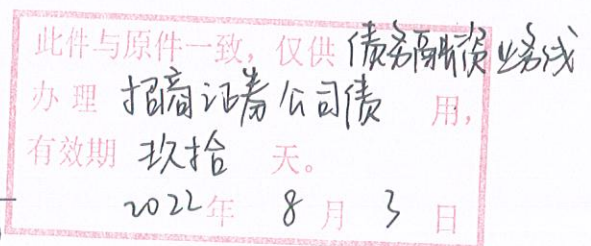 此件与原件一致，仅供 债务融资业务线
办理 招商证券公司债 用，
有效期 玖拾 天。
2022年 8月 3日